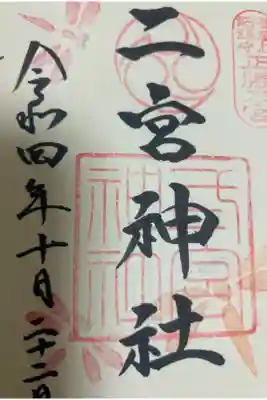 二宮神社
令和四年十月二十二日